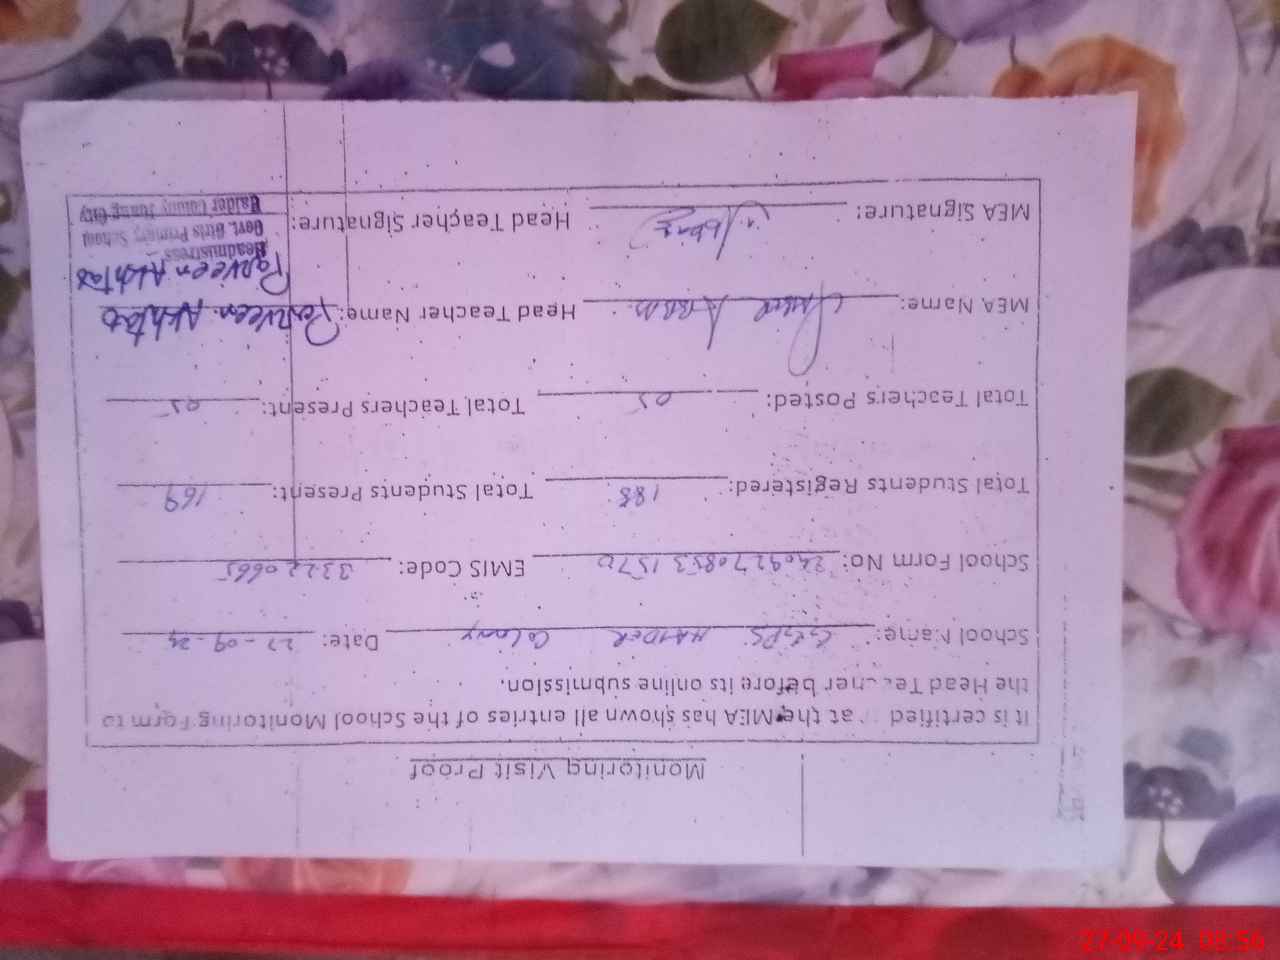 Monitoring Visit Proof
It is certified that the MEA has shown all entries of the School Monitoring Form to
the Head Teacher before its online submission.
School Name: GGPS HAIDER Colony Date: 27-09-24
School Form No: EMIS Code: 33220665
Total Students Registered: 188 Total Students Present: 169
Total Teachers Posted: 05 Total Teachers Present: 05
MEA Name: ABBAS Head Teacher Name: Parveen Akhtar
Parveen Akhtar
MEA Signature: Head Teacher Signature:
Headmistress
Govt. Girls Primary School
Haider Colony Jhang City
27-09-24 08:56